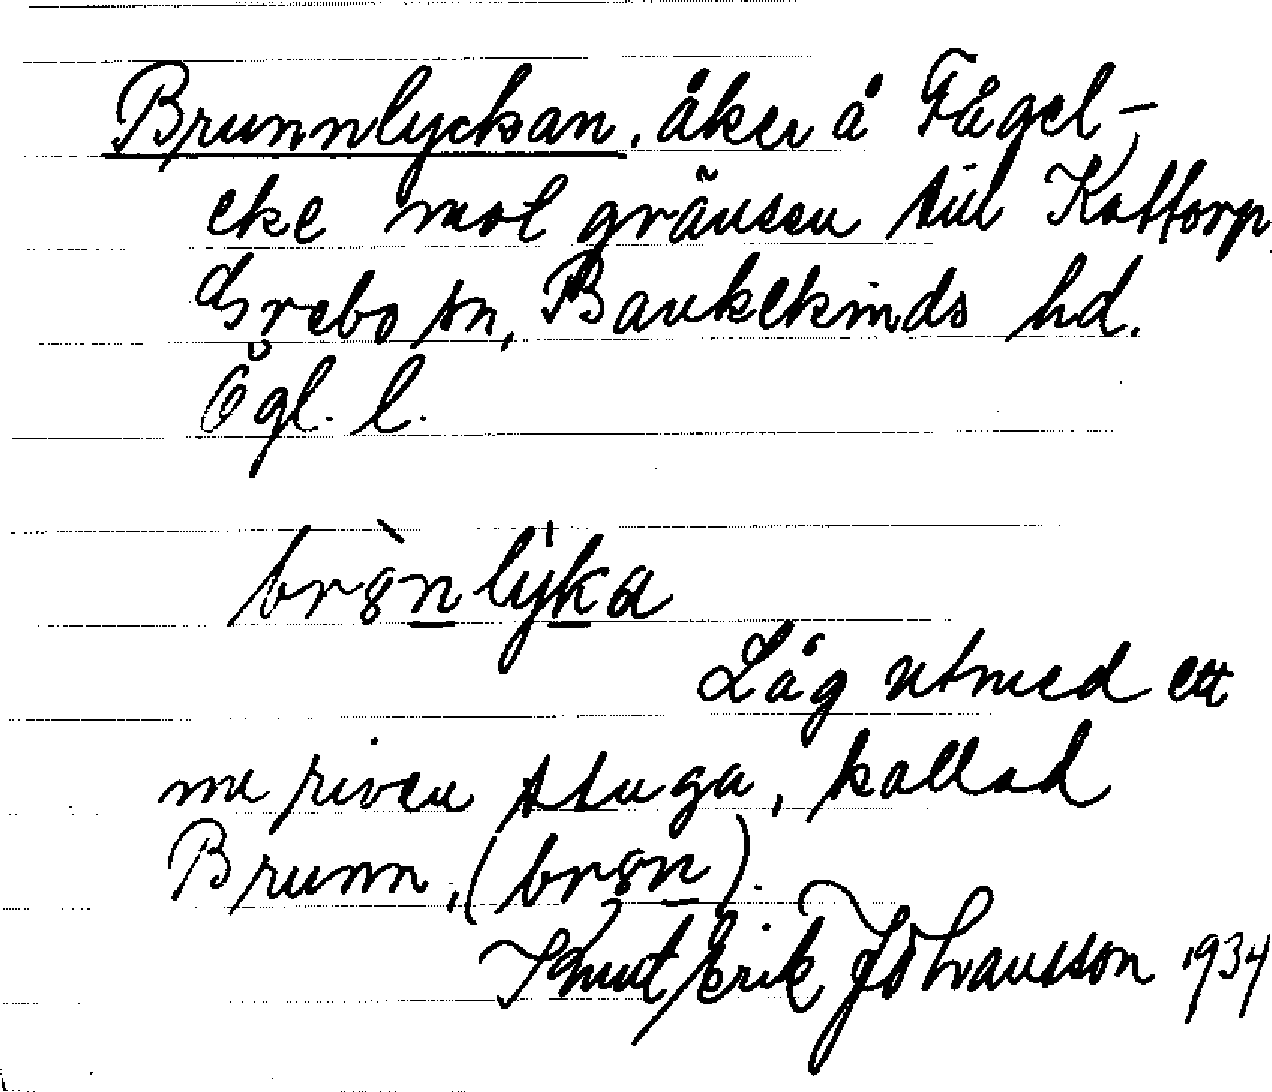 Brunnlyckan, åker å Fågel-
eke mot gränsen till Kattorp
Grebo sn, Bankekinds hd.
Ögl. l.
brȣ̀nlýka
Låg utmed ett
nu riven stuga, kallad
Brunn, (brȣn).
Knut Erik Johansson 1934